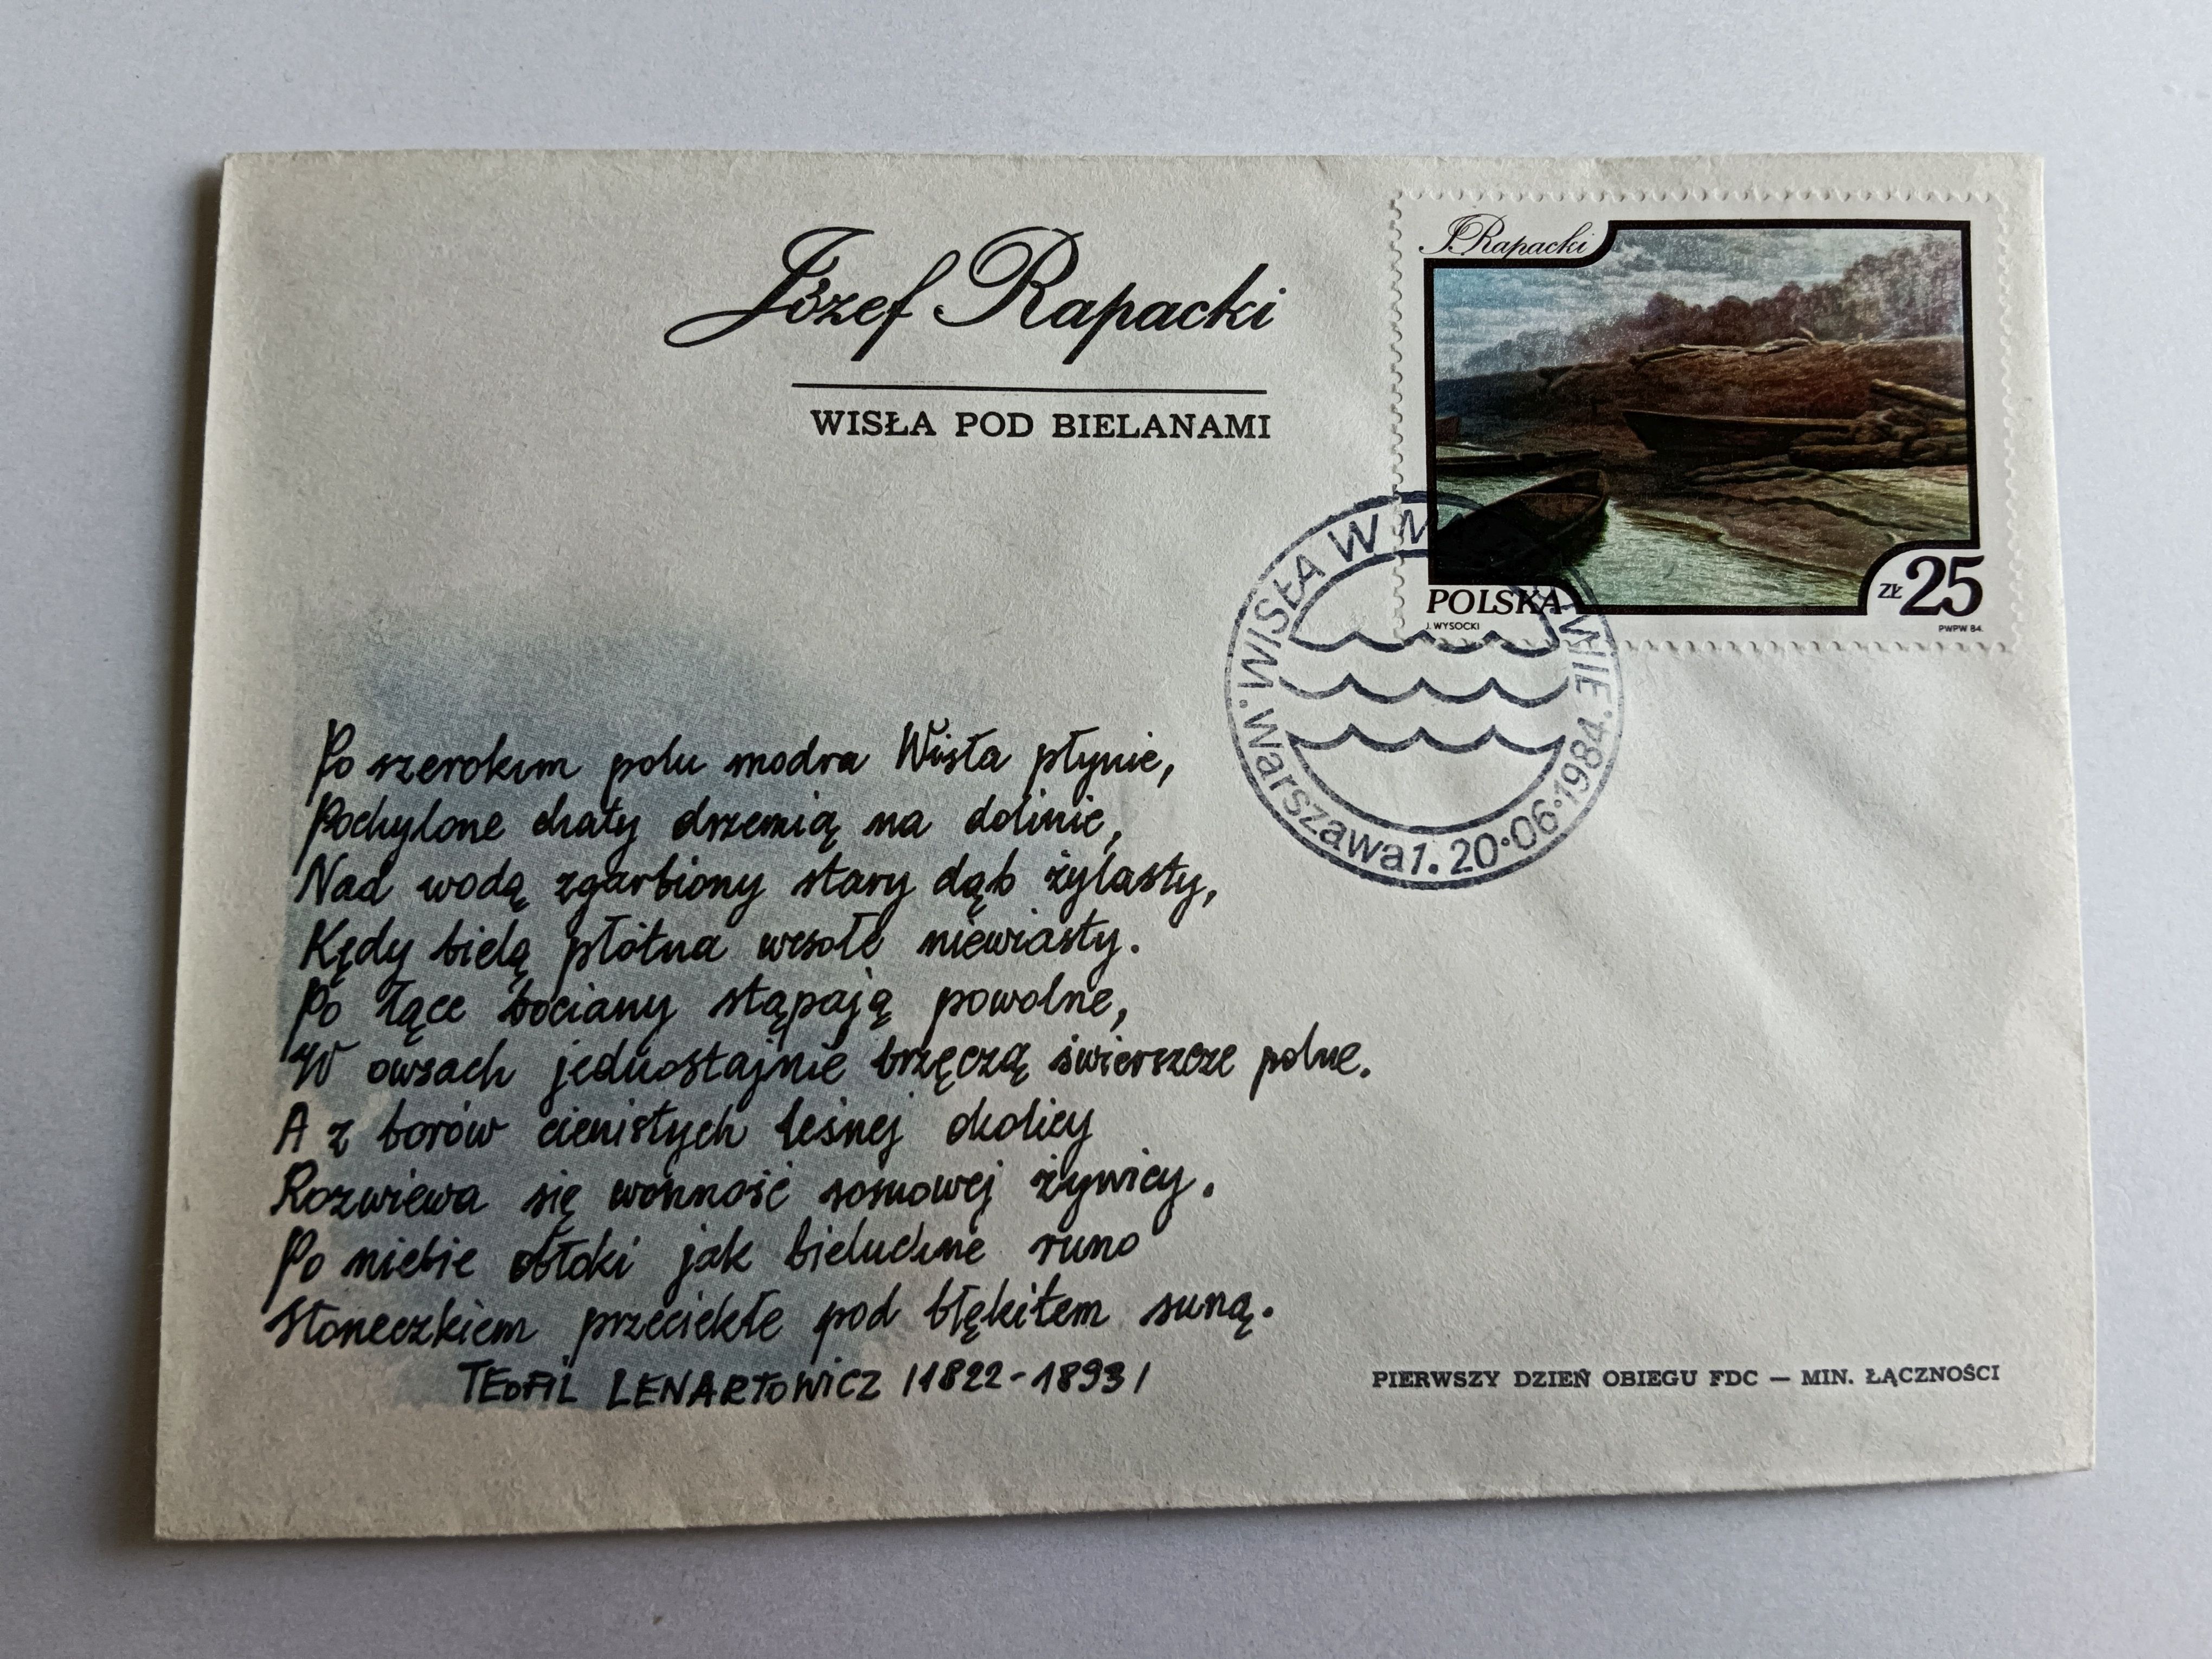 Józef Rapacki
WISŁA POD BIELANAMI
J. Rapacki
POLSKA
J. WYSOCKI
ZŁ 25
PWPW 84.
WISŁA W
Warszawa 1. 20·06·1984.
Po szerokim polu modra Wisła płynie,
Pochylone chaty drzemią na dolinie,
Nad wodą zgarbiony stary dąb żylasty,
Kędy bielą płótna wesołe niewiasty.
Po łące bociany stąpają powolne,
W owsach jednostajnie brzęczą świerszcze polne.
A z borów cienistych leśnej okolicy
Rozwiewa się wonność sosnowej żywicy.
Po niebie obłoki jak bieluchne runo
Słoneczkiem przeciekłe pod błękitem suną.
TEOFIL LENARTOWICZ /1822-1893/
PIERWSZY DZIEŃ OBIEGU FDC — MIN. ŁĄCZNOŚCI